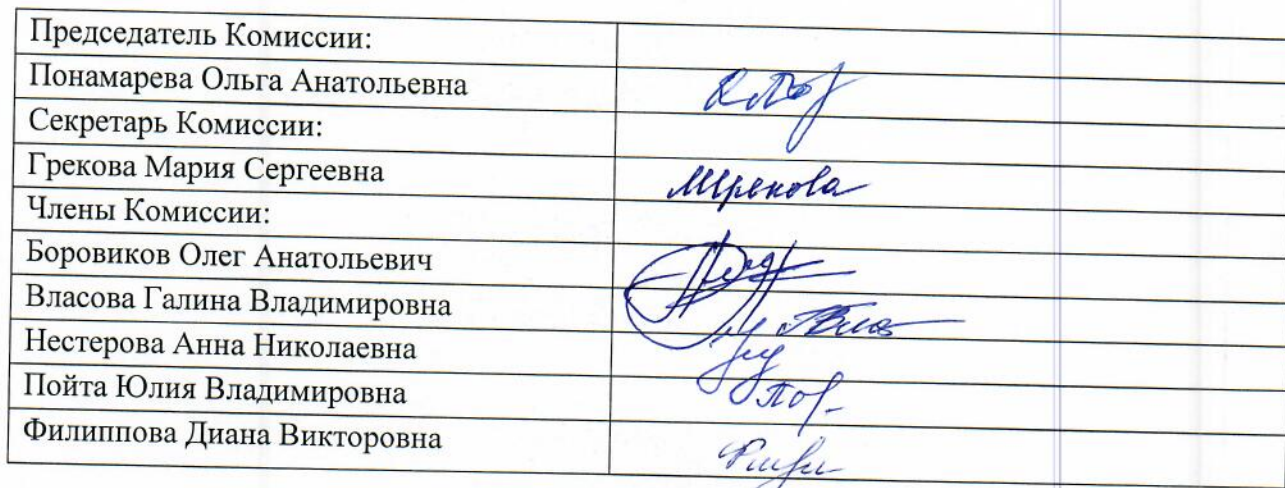 Председатель Комиссии:
Понамарева Ольга Анатольевна
Секретарь Комиссии:
Грекова Мария Сергеевна
МГрекова
Члены Комиссии:
Боровиков Олег Анатольевич
Власова Галина Владимировна
Нестерова Анна Николаевна
Пойта Юлия Владимировна
Филиппова Диана Викторовна